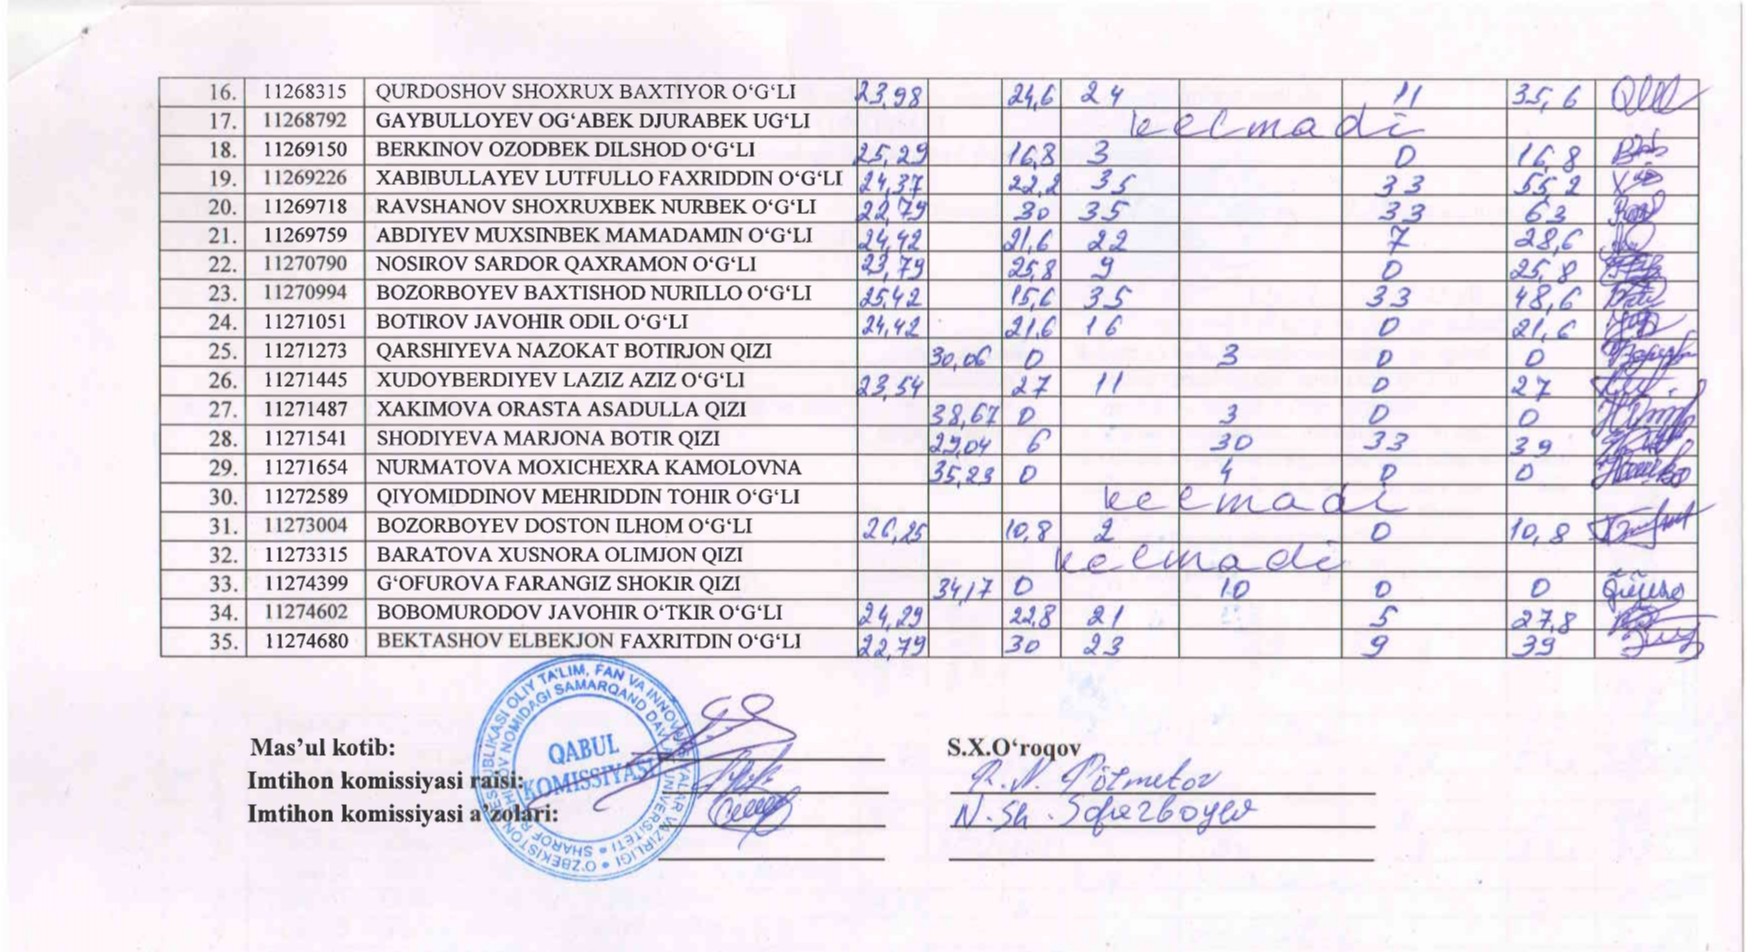 16. 11268315 QURDOSHOV SHOXRUX BAXTIYOR O‘G‘LI 23,98 24,6 24 11 35,6
17. 11268792 GAYBULLOYEV OG‘ABEK DJURABEK UG‘LI kelmadi
18. 11269150 BERKINOV OZODBEK DILSHOD O‘G‘LI 25,29 16,8 3 0 16,8
19. 11269226 XABIBULLAYEV LUTFULLO FAXRIDDIN O‘G‘LI 24,37 22,2 35 33 55,2
20. 11269718 RAVSHANOV SHOXRUXBEK NURBEK O‘G‘LI 22,79 30 35 33 63
21. 11269759 ABDIYEV MUXSINBEK MAMADAMIN O‘G‘LI 24,42 21,6 22 7 28,6
22. 11270790 NOSIROV SARDOR QAXRAMON O‘G‘LI 23,79 25,8 9 0 25,8
23. 11270994 BOZORBOYEV BAXTISHOD NURILLO O‘G‘LI 25,42 15,6 35 33 48,6
24. 11271051 BOTIROV JAVOHIR ODIL O‘G‘LI 24,42 21,6 16 0 21,6
25. 11271273 QARSHIYEVA NAZOKAT BOTIRJON QIZI 30,06 0 3 0 0
26. 11271445 XUDOYBERDIYEV LAZIZ AZIZ O‘G‘LI 23,54 27 11 0 27
27. 11271487 XAKIMOVA ORASTA ASADULLA QIZI 38,67 0 3 0 0
28. 11271541 SHODIYEVA MARJONA BOTIR QIZI 29,04 6 30 33 39
29. 11271654 NURMATOVA MOXICHEXRA KAMOLOVNA 35,23 0 4 0 0
30. 11272589 QIYOMIDDINOV MEHRIDDIN TOHIR O‘G‘LI kelmadi
31. 11273004 BOZORBOYEV DOSTON ILHOM O‘G‘LI 26,25 10,8 2 0 10,8
32. 11273315 BARATOVA XUSNORA OLIMJON QIZI kelmadi
33. 11274399 G‘OFUROVA FARANGIZ SHOKIR QIZI 34,17 0 10 0 0
34. 11274602 BOBOMURODOV JAVOHIR O‘TKIR O‘G‘LI 24,29 22,8 21 5 27,8
35. 11274680 BEKTASHOV ELBEKJON FAXRITDIN O‘G‘LI 22,79 30 23 9 39
QABUL
KOMISSIYASI
Mas’ul kotib: S.X.O‘roqov
Imtihon komissiyasi raisi:
Imtihon komissiyasi a’zolari: N.Sh.